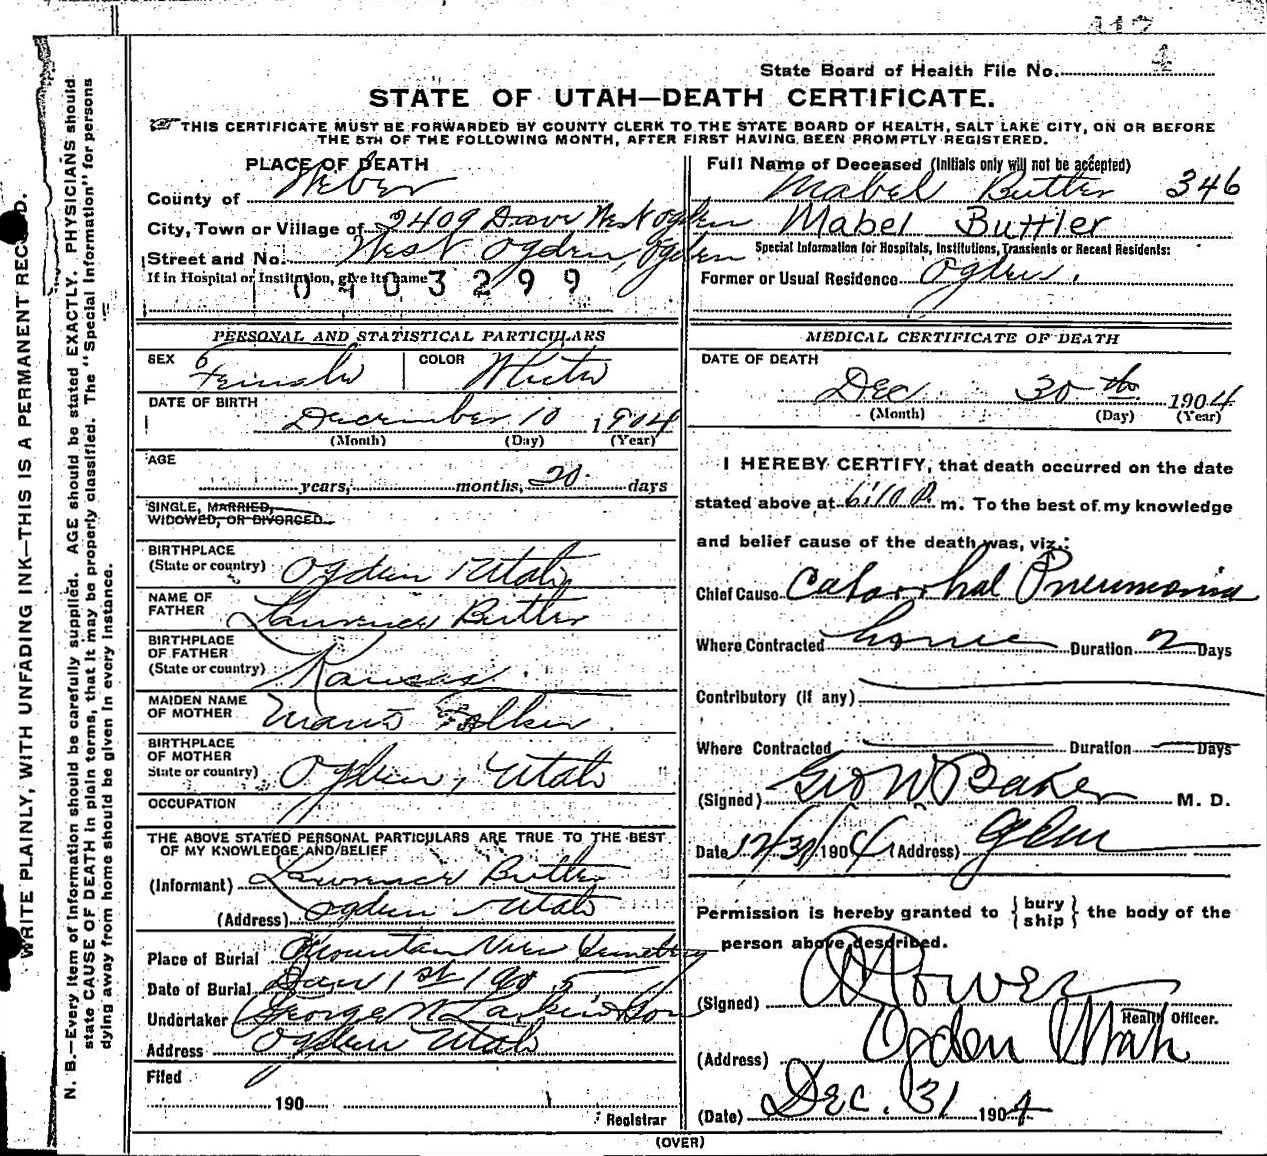 State Board of Health File No. 4
STATE OF UTAH—DEATH CERTIFICATE.
THIS CERTIFICATE MUST BE FORWARDED BY COUNTY CLERK TO THE STATE BOARD OF HEALTH, SALT LAKE CITY, ON OR BEFORE
THE 5TH OF THE FOLLOWING MONTH, AFTER FIRST HAVING BEEN PROMPTLY REGISTERED.
WRITE PLAINLY, WITH UNFADING INK—THIS IS A PERMANENT RECORD.
N. B.—Every item of information should be carefully supplied. AGE should be stated EXACTLY. PHYSICIANS should
state CAUSE OF DEATH in plain terms, that it may be properly classified. The "Special Information" for persons
dying away from home should be given in every instance.
PLACE OF DEATH
County of Weber
City, Town or Village of 2409 West Ogden
Street and No. West Ogden, Ogden
If in Hospital or Institution, give its name
0103299
Full Name of Deceased (Initials only will not be accepted)
Mabel Butler 346
Mabel Buttler
Special Information for Hospitals, Institutions, Transients or Recent Residents:
Former or Usual Residence Ogden.
PERSONAL AND STATISTICAL PARTICULARS
SEX Female COLOR White
DATE OF BIRTH
December 10 1904
(Month) (Day) (Year)
AGE
years, months, 20 days
SINGLE, MARRIED,
WIDOWED, OR DIVORCED
BIRTHPLACE
(State or country) Ogden Utah
NAME OF
FATHER Laurence Butler
BIRTHPLACE
OF FATHER
(State or country) Kansas
MAIDEN NAME
OF MOTHER
BIRTHPLACE
OF MOTHER
State or country) Ogden, Utah
OCCUPATION
THE ABOVE STATED PERSONAL PARTICULARS ARE TRUE TO THE BEST
OF MY KNOWLEDGE AND BELIEF
(Informant) Lawrence Butler
(Address) Ogden Utah
Place of Burial Mountain View Cemetery
Date of Burial Jan 1st 1905
Undertaker George W Larkin & Son
Address Ogden Utah
Filed
190
Registrar
MEDICAL CERTIFICATE OF DEATH
DATE OF DEATH
Dec 30th 1904
(Month) (Day) (Year)
I HEREBY CERTIFY, that death occurred on the date
stated above at 6:10 P. m. To the best of my knowledge
and belief cause of the death was, viz.:
Chief Cause Catarrhal Pneumonia
Where Contracted home Duration 2 Days
Contributory (if any)
Where Contracted Duration Days
(Signed) Geo W Baker M. D.
Date 12/31/1904 (Address) Ogden
Permission is hereby granted to { bury ship } the body of the
person above described.
(Signed)
Health Officer.
(Address) Ogden Utah
(Date) Dec. 31 1904
(OVER)